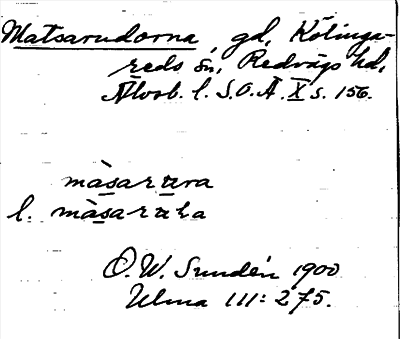 Matsarudorna, gd, Kölinga-
reds sn, Redvägs hd,
Älvsb. l. S.O.Ä. X s. 156.
màsarʉra
l. màsarʉla
O. W. Sundén 1900
Ulma 111:275.